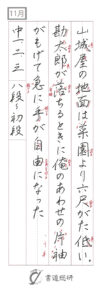 11月
山城屋の地面は菜園より六尺がた低い。
勘太郎が落ちるときに俺のあわせの片袖
がもげて急に手が自由になった
中一二三 八段～初段
書道総研